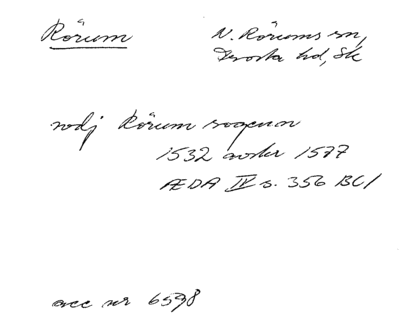 Rörum
N. Rörums sn,
Frosta hd, Sk
nodj Rörum sogenn
1532 avskr 1577
ÆDA IV s. 356 BCI
acc nr 6598